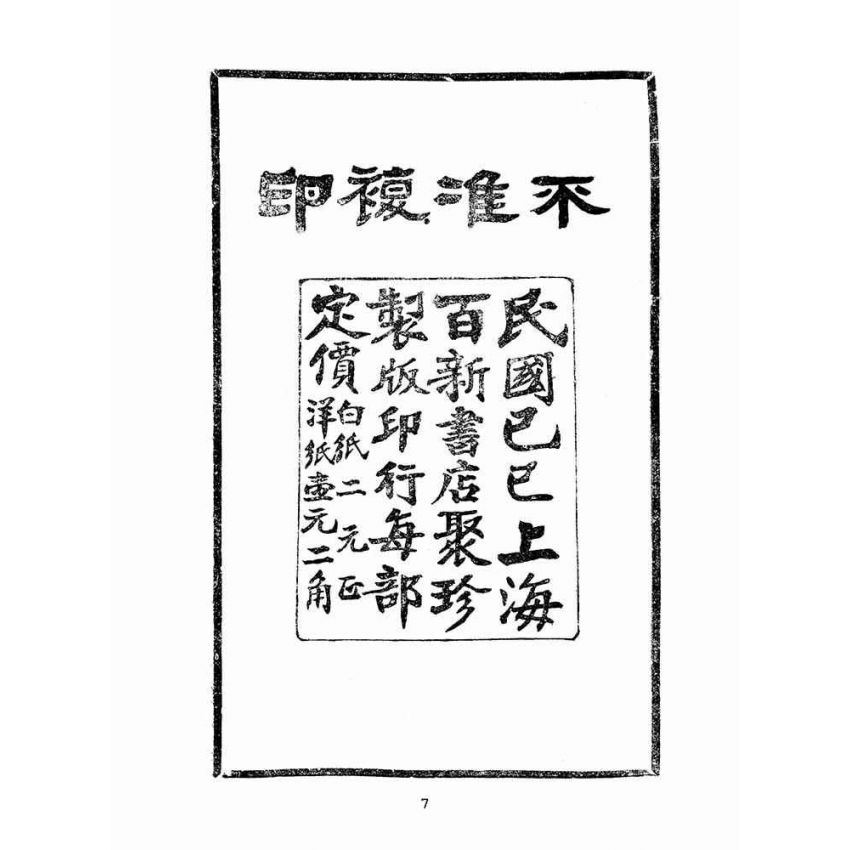 不准複印
民國己巳上海
百新書店聚珍
製版印行每部
定價白紙二元正
洋紙壹元二角
7